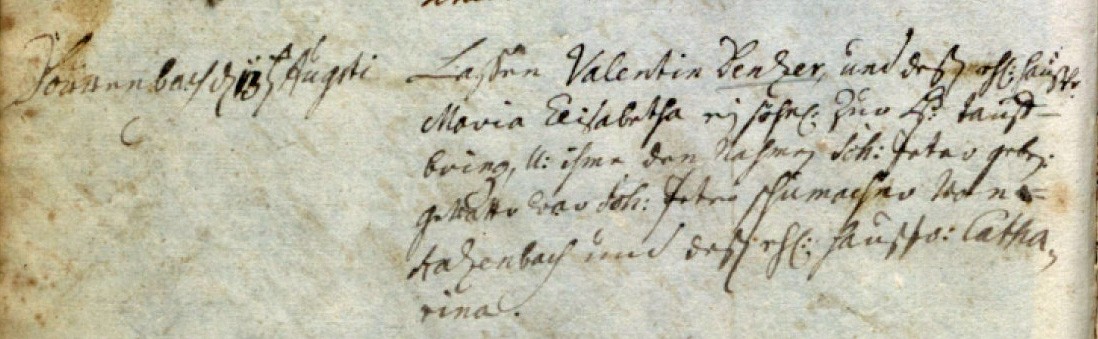 Sonnenbach d 13t Augsti
Laßen Valentin Benzer, und deßen ehl: haußfr:
Maria Elisabetha ein söhnl: zur H: tauff-
bring, u: ihme den Nahmen Joh: Peter geben.
gevatter war Joh: Peter schumacher von
Katzenbach und deßen ehl: haußfr: Catha,
rina.